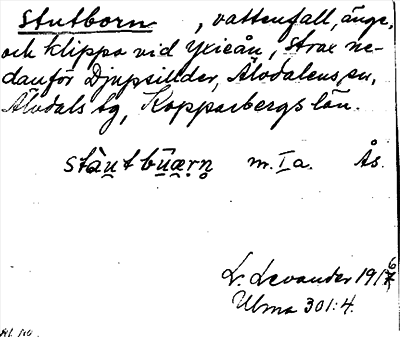 Stutborn , vattenfall, änge,
och klippa vid Yxieån, strax ne-
danför Djupsilder, Älvdalens sn,
Älvdals tg, Kopparbergs län.
stàu̯t bū̯æ̯ṛn̥ m. I a. Ås.
L. Levander 1916
Ulma 301:4.